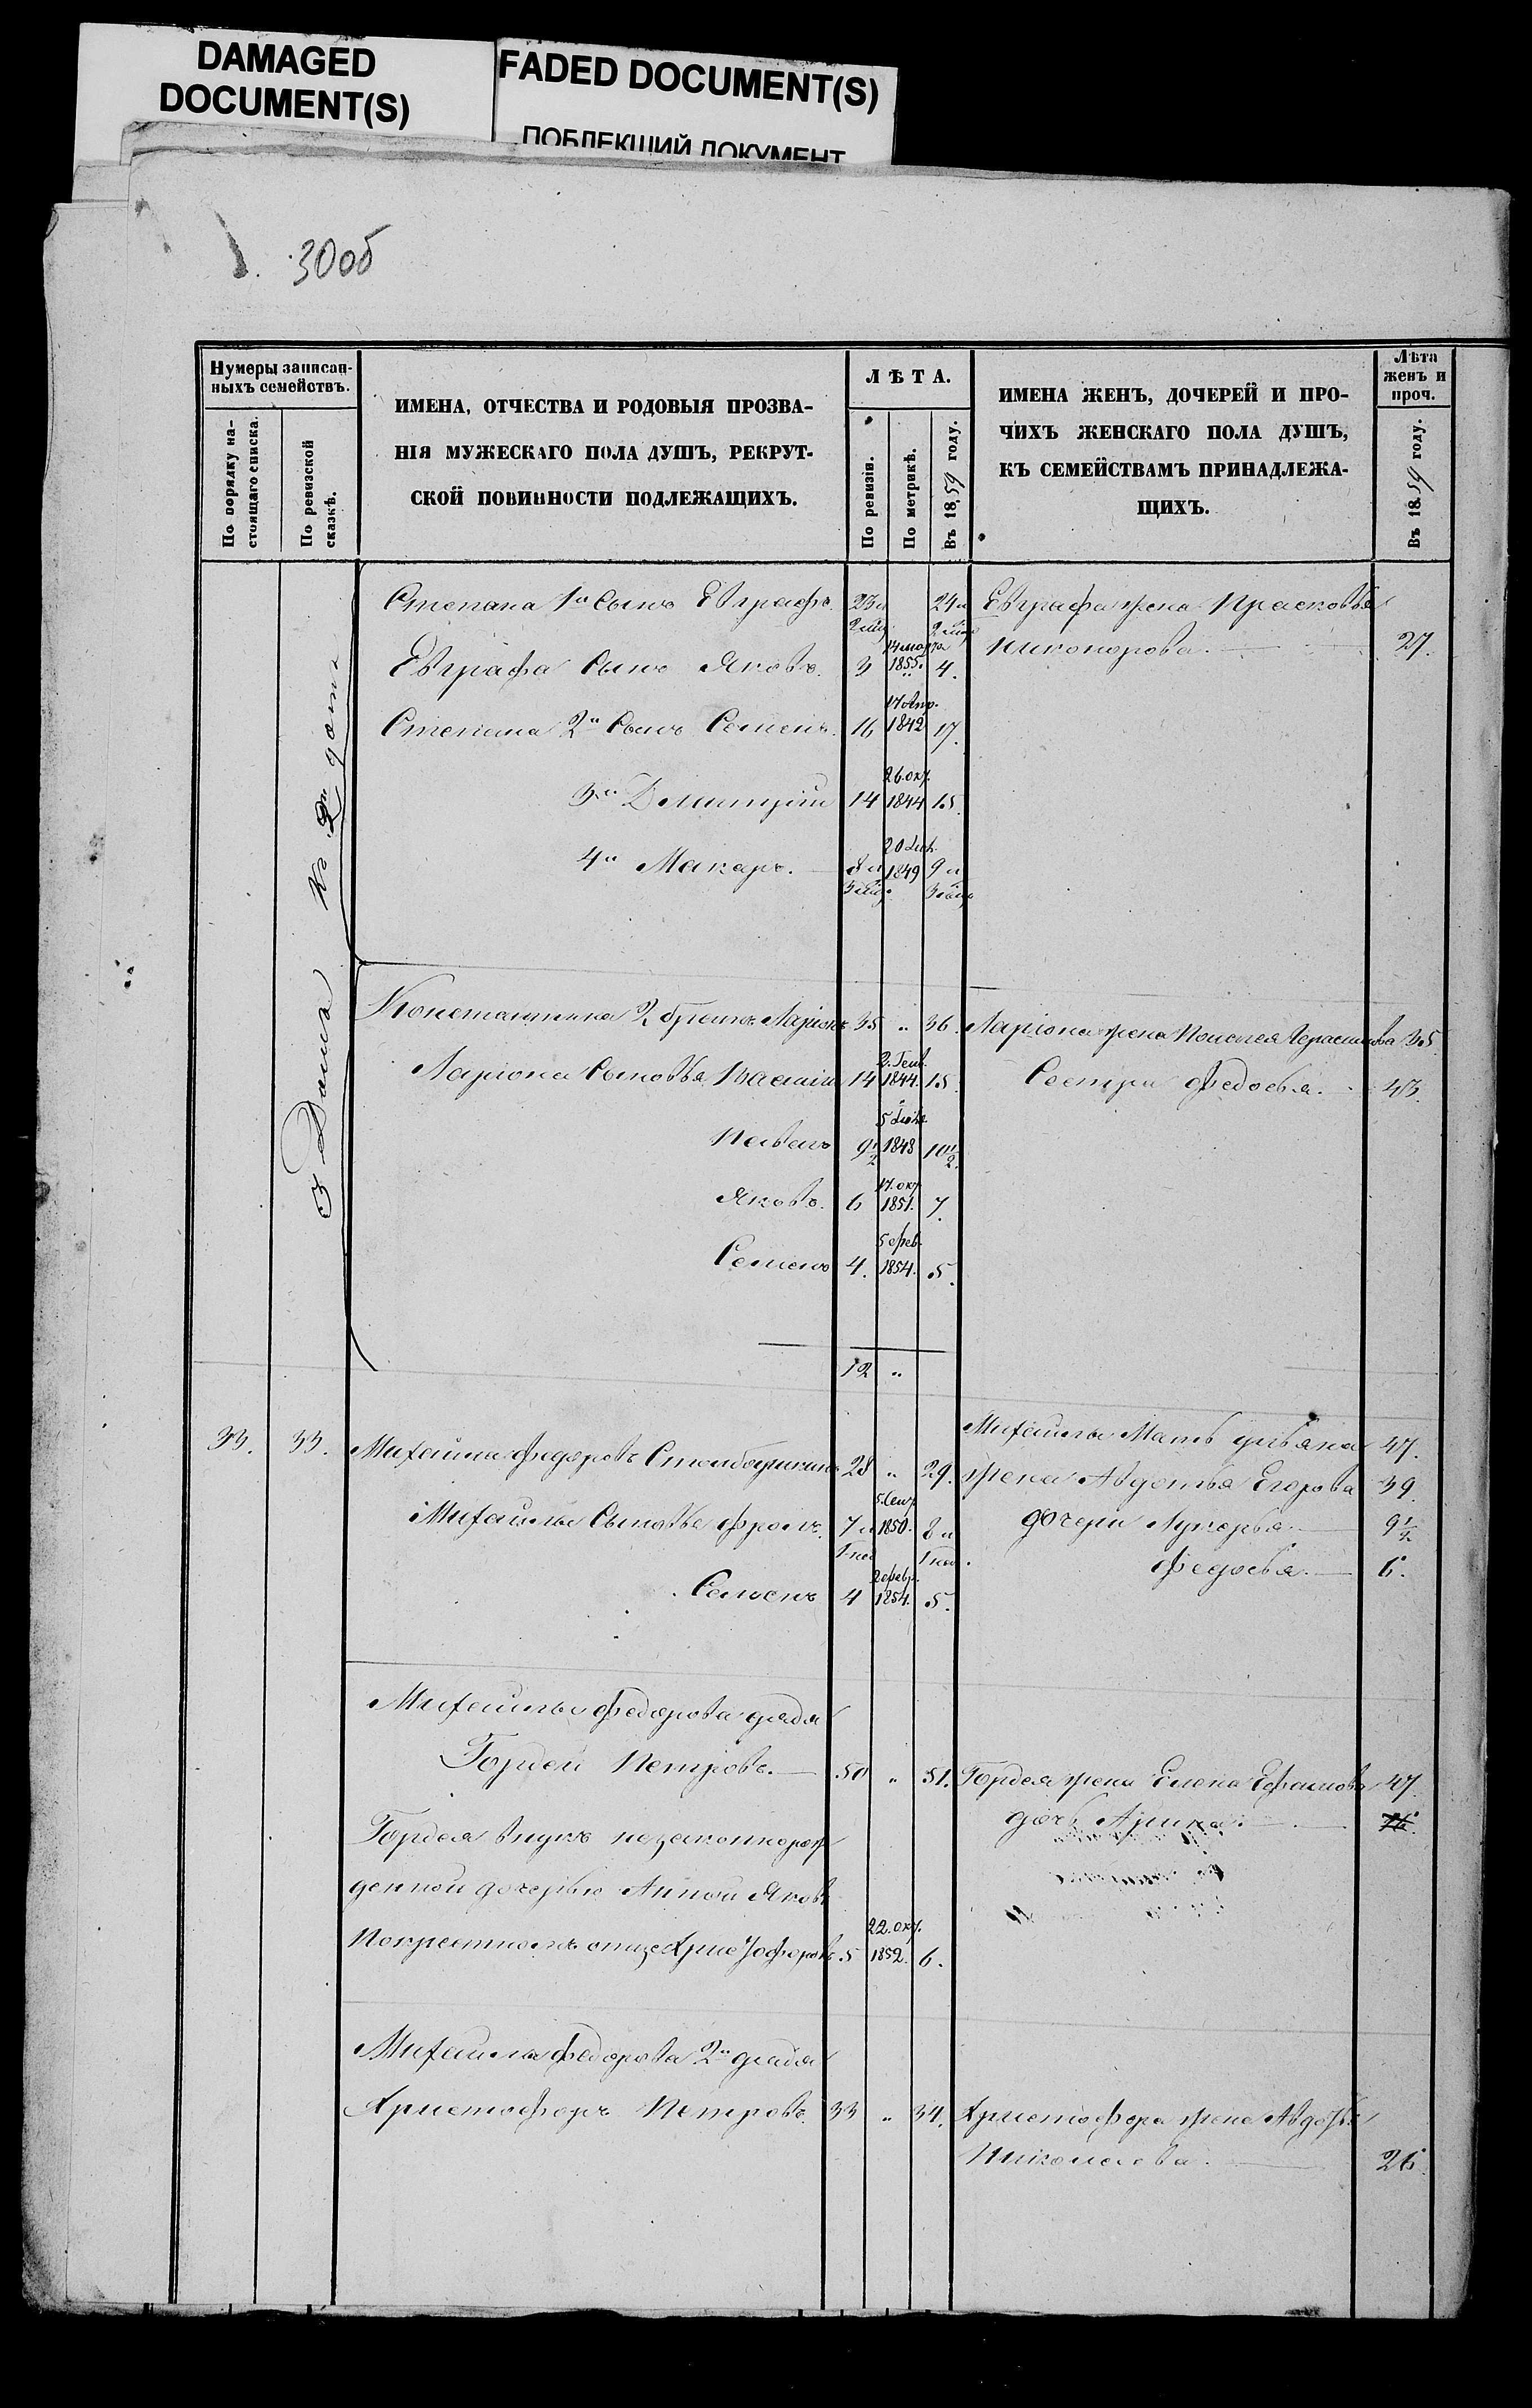 DAMAGED
DOCUMENT(S)
FADED DOCUMENT(S)
ПОБЛЕКШИЙ ДОКУМЕНТ
30об
Нумеры записан-
ныхъ семействъ.
По порядку на-
стоящаго списка.
По ревизской
сказкѣ.
ИМЕНА, ОТЧЕСТВА И РОДОВЫЯ ПРОЗВА-
НІЯ МУЖЕСКАГО ПОЛА ДУШЪ, РЕКРУТ-
СКОЙ ПОВИННОСТИ ПОДЛЕЖАЩИХЪ.
ЛѢТА.
По ревизіи.
По метрикѣ.
Въ 1859 году.
ИМЕНА ЖЕНЪ, ДОЧЕРЕЙ И ПРО-
ЧИХЪ ЖЕНСКАГО ПОЛА ДУШЪ,
КЪ СЕМЕЙСТВАМЪ ПРИНАДЛЕЖА-
ЩИХЪ.
Лѣта
женъ и
проч.
Въ 1859 году.
Степана 1й сынъ Евграфъ. 23 и 24 и Евграфа жена Прасковья
2 мѣс 2 мѣс
14 марта Никонорова. 27.
Евграфа сынъ Яковъ. 3 1855. 4.
17 Апр.
Степана 2й сынъ Семенъ. 16 1842 17.
26 окт.
3й Дмитрій 14 1844 15.
4й Макаръ. 8 и 1849 9 и
3 мѣс. 3 мѣс
Константина 2 братъ Ларіонъ 35 „ 36. Ларіона жена Пелагея Герасимова 35
2. Генв.
Ларіона сыновья Василій 14 1844. 15. Сестра Федосья. 43.
Павелъ 9½ 1848 10½.
17. окт
Яковъ. 6 1851. 7.
5 фев.
Семенъ 4. 1854. 5.
12 „
33. 33. Михаила Федоровъ 28 „ 29. Михаилы Мать Ульяна 47.
жена Авдотья Егорова 39.
5. Сент
Михаилы сыновья Фролъ. 7 и 1850. 8 и дочери Лукерья. 9½
1 нед 1 нед. Федосья. 6.
2 февр.
Семенъ 4 1854. 5.
Михаилы Федорова дядя
Гордей Петровъ. 50 „ 51. Гордея жена Елена Ефимова 47.
дочь Арина.
Гордея внукъ незаконнорож
денной дочерью Анной Яковъ
22. окт.
По крестномъ отцѣ Христофоровъ. 5 1852. 6.
Михаила Федорова 2й дядя
Христофоръ Петровъ. 33 „ 34. Христофора жена Авдотья
Николаева. 26.